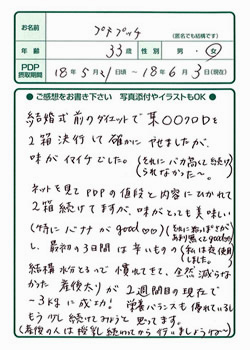 お名前
プチプッチ
(匿名でも結構です)
年齢 33歳 性別 男・女
PDP摂取期間 18年5月21日頃~18年6月3日(現在)
● ご感想をお書き下さい 写真添付やイラストもOK ●
結婚式前のダイエットで某○○クロDを
2箱決行して確かにやせましたが、
味がイマイチでした。(それにバカ高くて続けられなかた〜。)
ネットを見てPDPの値段と内容にひかれて
2箱続けてますが、味がとっても美味しい
(特にバナナがgood♡♡)
し、最初の3日間は辛いものの(私は良く使用しました。)
結構水分とるって慣れてきて、全然減らな
かった産後太りが2週間目の現在で
-3kgに成功! 栄養バランスも優れているし
もう少し続けてみようと思ってます。
(産後の人は授乳終わってから行いましょうね〜)